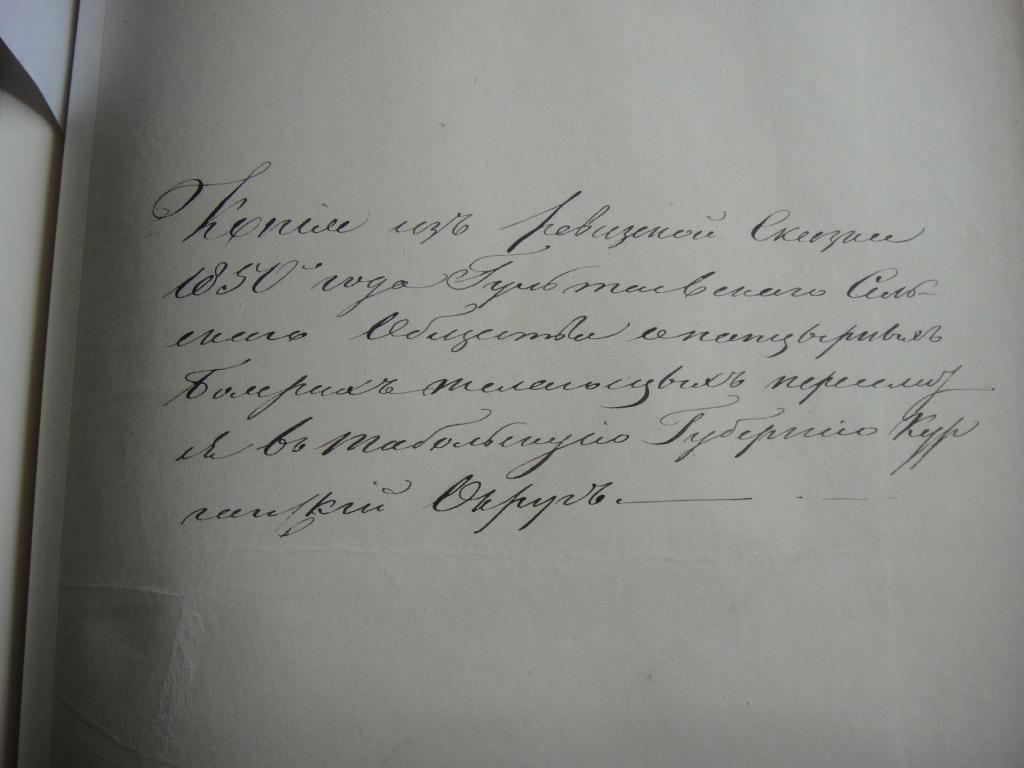 Копія изъ ревизской Сказки
1850 года Гультяевскаго Сель-
скаго Общества о панцырныхъ
Боярахъ желающыхъ переселит
ся въ табольскую Губернію Кур
ганскій Округъ.